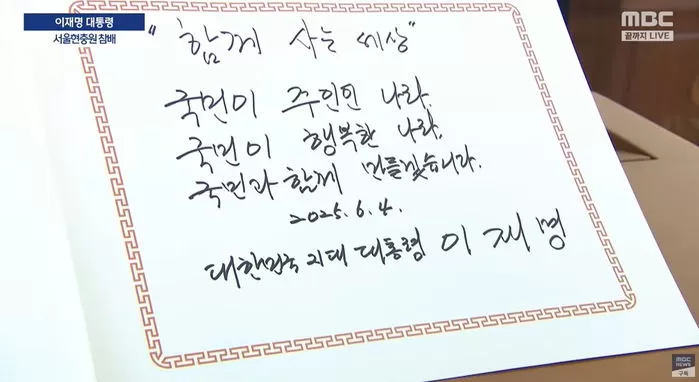 이재명 대통령
서울현충원 참배
MBC
끝까지 LIVE
"함께 사는 세상"
국민이 주인인 나라,
국민이 행복한 나라,
국민과 함께 만들겠습니다.
2025. 6. 4.
대한민국 21대 대통령 이재명
MBC
NEWS
구독